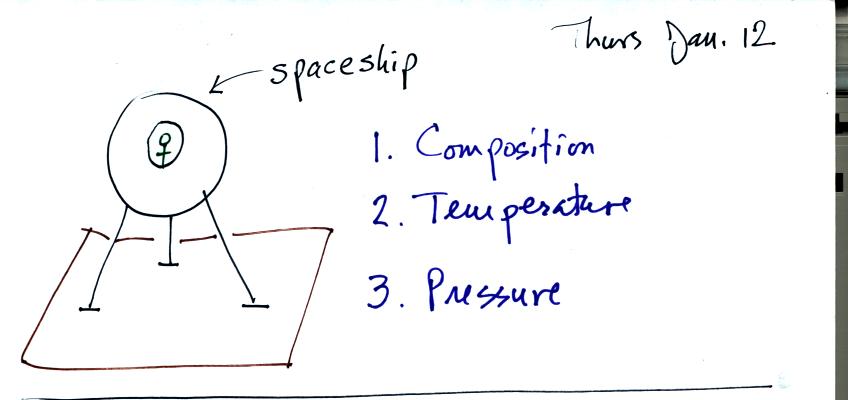 Thurs Jan. 12
spaceship
1. Composition
2. Temperature
3. Pressure